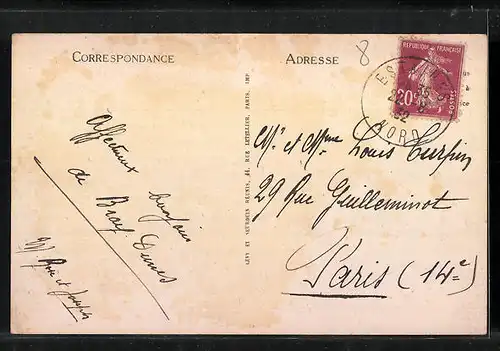 CORRESPONDANCE
ADRESSE
8
REPUBLIQUE FRANÇAISE
20c
POSTES
22
32
NORD
LÉVY ET NEURDEIN RÉUNIS, 44, RUE LETELLIER, PARIS, IMP.
Affectueux
bonjour
de Bray Dunes
Mr et Mme Louis Turpin
29 Rue Guilleminot
Paris (14e)